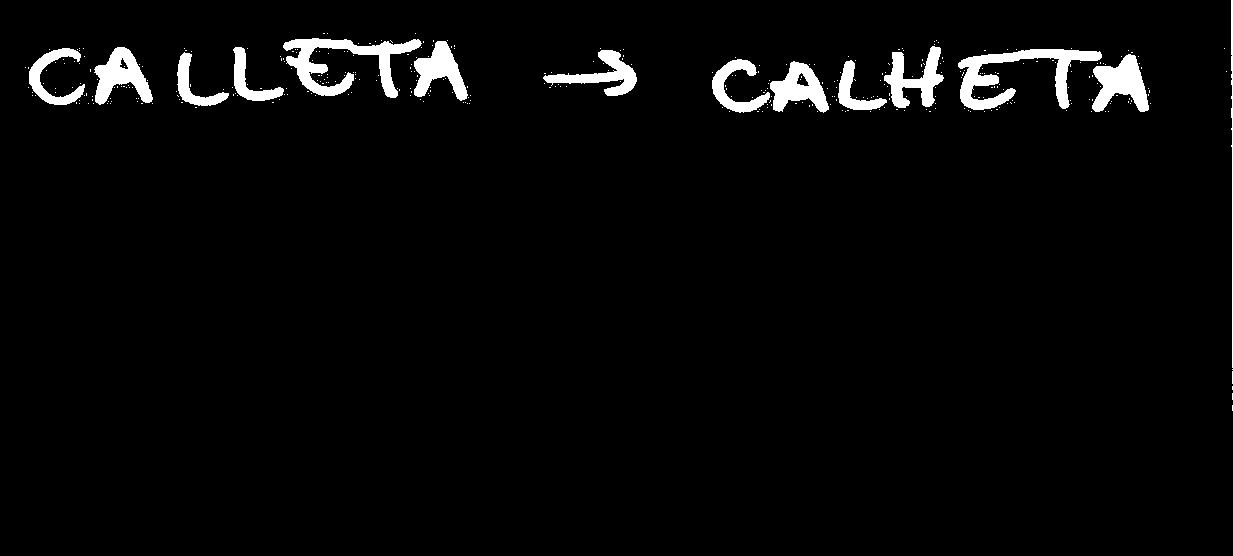 CALLETA → CALHETA